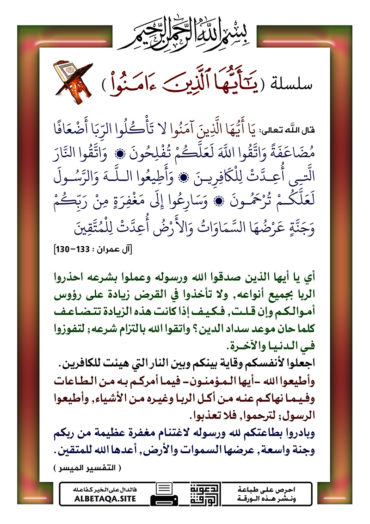 بسم الله الرحمن الرحيم
سلسلة ( يَـٰٓأَيُّهَا ٱلَّذِينَ ءَامَنُوا۟ )
قال الله تعالى: يَا أَيُّهَا الَّذِينَ آمَنُوا لَا تَأْكُلُوا الرِّبَا أَضْعَافًا
مُضَاعَفَةً وَاتَّقُوا اللَّهَ لَعَلَّكُمْ تُفْلِحُونَ ۞ وَاتَّقُوا النَّارَ
الَّتِي أُعِدَّتْ لِلْكَافِرِينَ ۞ وَأَطِيعُوا اللَّهَ وَالرَّسُولَ
لَعَلَّكُمْ تُرْحَمُونَ ۞ وَسَارِعُوا إِلَى مَغْفِرَةٍ مِنْ رَبِّكُمْ
وَجَنَّةٍ عَرْضُهَا السَّمَاوَاتُ وَالْأَرْضُ أُعِدَّتْ لِلْمُتَّقِينَ
[آل عمران : 133-130]
أي يا أيها الذين صدقوا الله ورسوله وعملوا بشرعه احذروا
الربا بجميع أنواعه, ولا تأخذوا في القرض زيادة على رؤوس
أموالكم وإن قلت, فكيف إذا كانت هذه الزيادة تتضاعف
كلما حان موعد سداد الدين؟ واتقوا الله بالتزام شرعه; لتفوزوا
في الدنيا والآخرة.
اجعلوا لأنفسكم وقاية بينكم وبين النار التي هيئت للكافرين.
وأطيعوا الله -أيها المؤمنون- فيما أمركم به من الطاعات
وفيما نهاكم عنه من أكل الربا وغيره من الأشياء, وأطيعوا
الرسول; لترحموا, فلا تعذبوا.
وبادروا بطاعتكم لله ورسوله لاغتنام مغفرة عظيمة من ربكم
وجنة واسعة, عرضها السموات والأرض, أعدها الله للمتقين.
( التفسير الميسر )
احرص على طباعة
ونشر هذه الورقة
الدعوية
الورقة
فالدال على الخير كفاعله
ALBETAQA.SITE